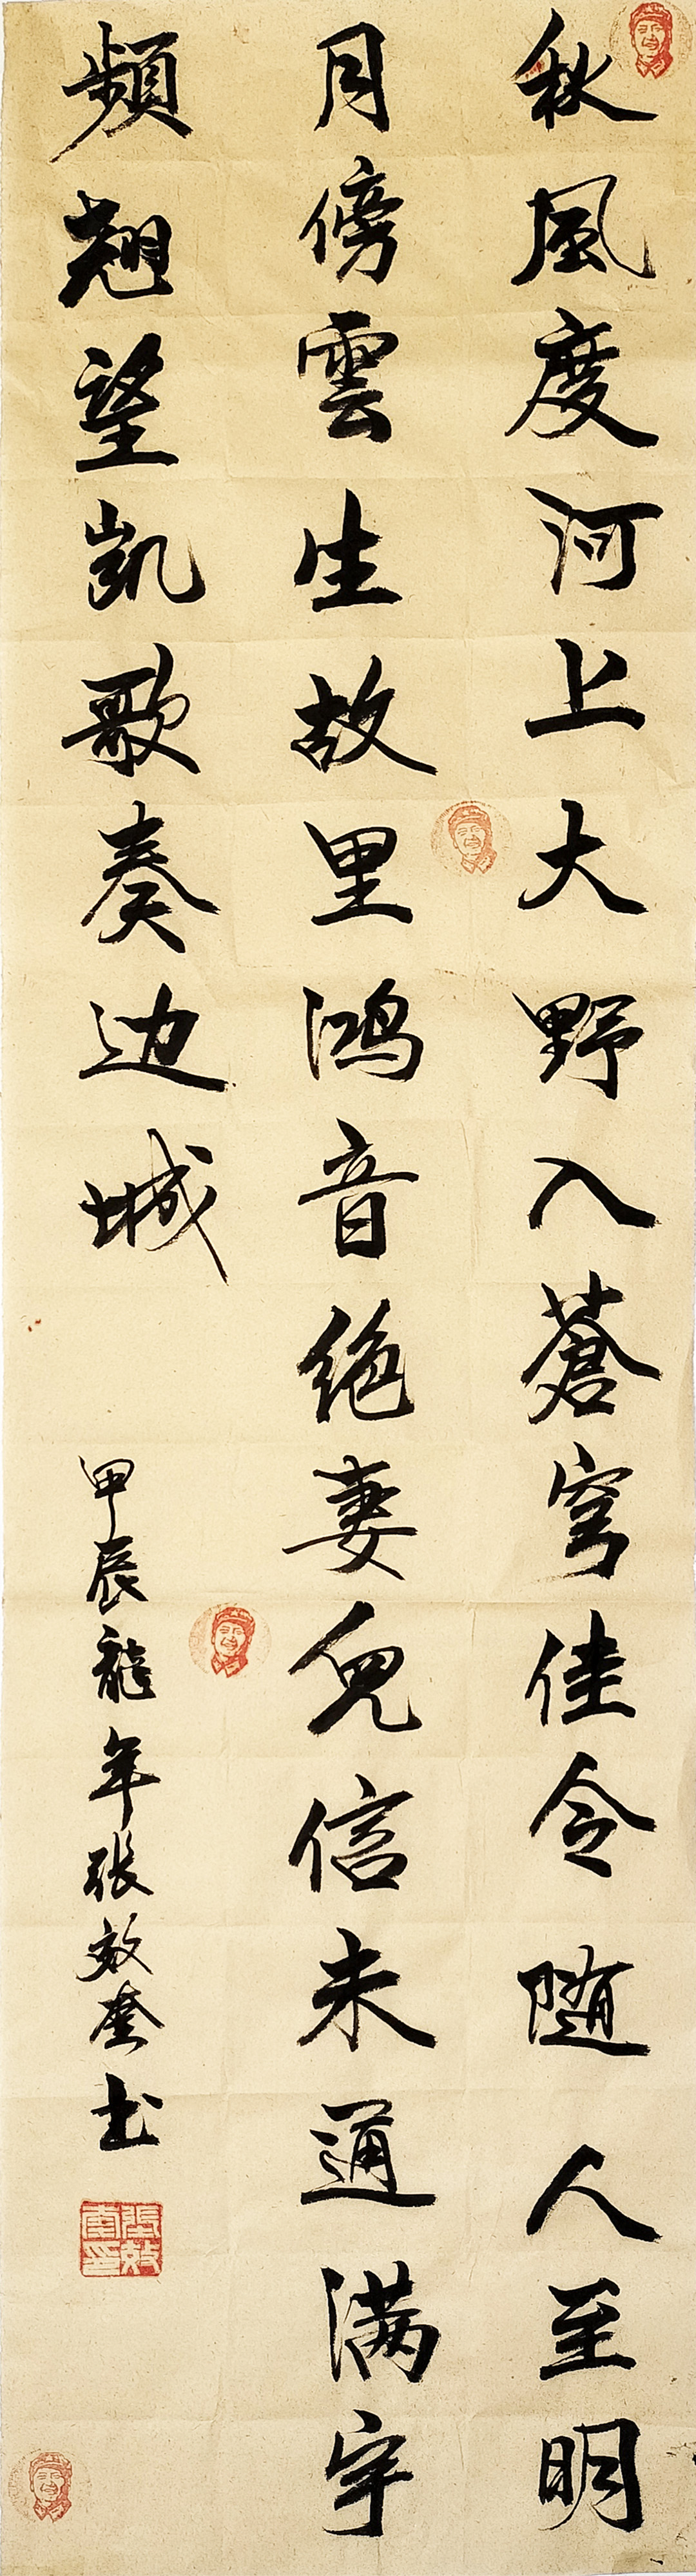 秋風度河上大野入蒼穹佳令随人至明
月傍雲生故里鸿音绝妻兒信未通满宇
頻翹望凯歌奏边城
甲辰龍年张效奎书